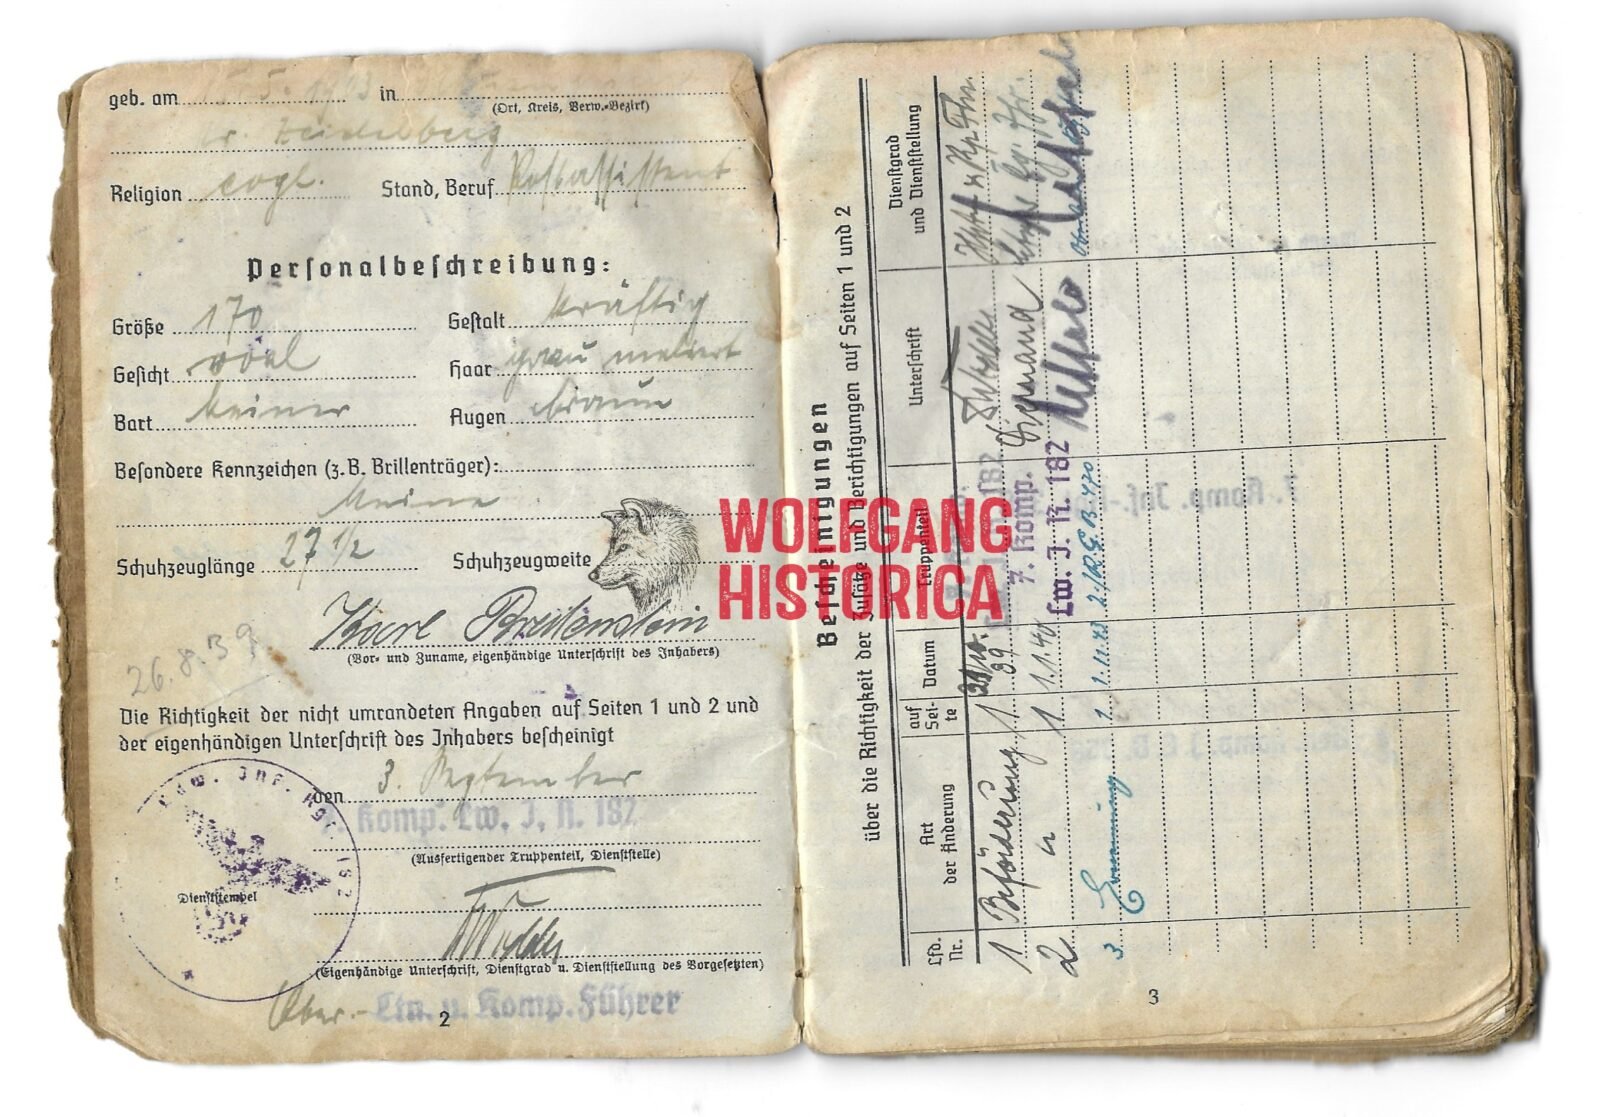 geb. am 15. 5. 1903 in
(Ort, Kreis, Verw.-Bezirk)
Kr. Heidelberg
Religion evgl. Stand, Beruf Postassistent
Personalbeschreibung:
Größe 170 Gestalt kräftig
Gesicht oval Haar grau meliert
Bart keiner Augen braun
Besondere Kennzeichen (z.B. Brillenträger):
Keine
Schuhzeuglänge 27 1/2 Schuhzeugweite
Karl Breitenstein
(Vor- und Zuname, eigenhändige Unterschrift des Inhabers)
26.8.39.
Die Richtigkeit der nicht umrandeten Angaben auf Seiten 1 und 2 und
der eigenhändigen Unterschrift des Inhabers bescheinigt
den 3. September
Komp. Lw. J. R. 182
(Ausfertigender Truppenteil, Dienststelle)
Ldw. Inf. Rgt. 182
Dienststempel
(Eigenhändige Unterschrift, Dienstgrad u. Dienststellung des Vorgesetzten)
Ober.- Ltn. u. Komp. Führer
2
WOLFGANG
HISTORICA
Bescheinigungen
über die Richtigkeit der Zusätze und Berichtigungen auf Seiten 1 und 2
Lfd. Nr.
Art der Änderung
auf Seite
Datum
Truppenteil
Unterschrift
Dienstgrad und Dienststellung
1 Beförderung 1 39 182
2 " 1 1.1.40 7. Komp. Lw. J. R. 182
3 Ernennung 1 1.11.43
3